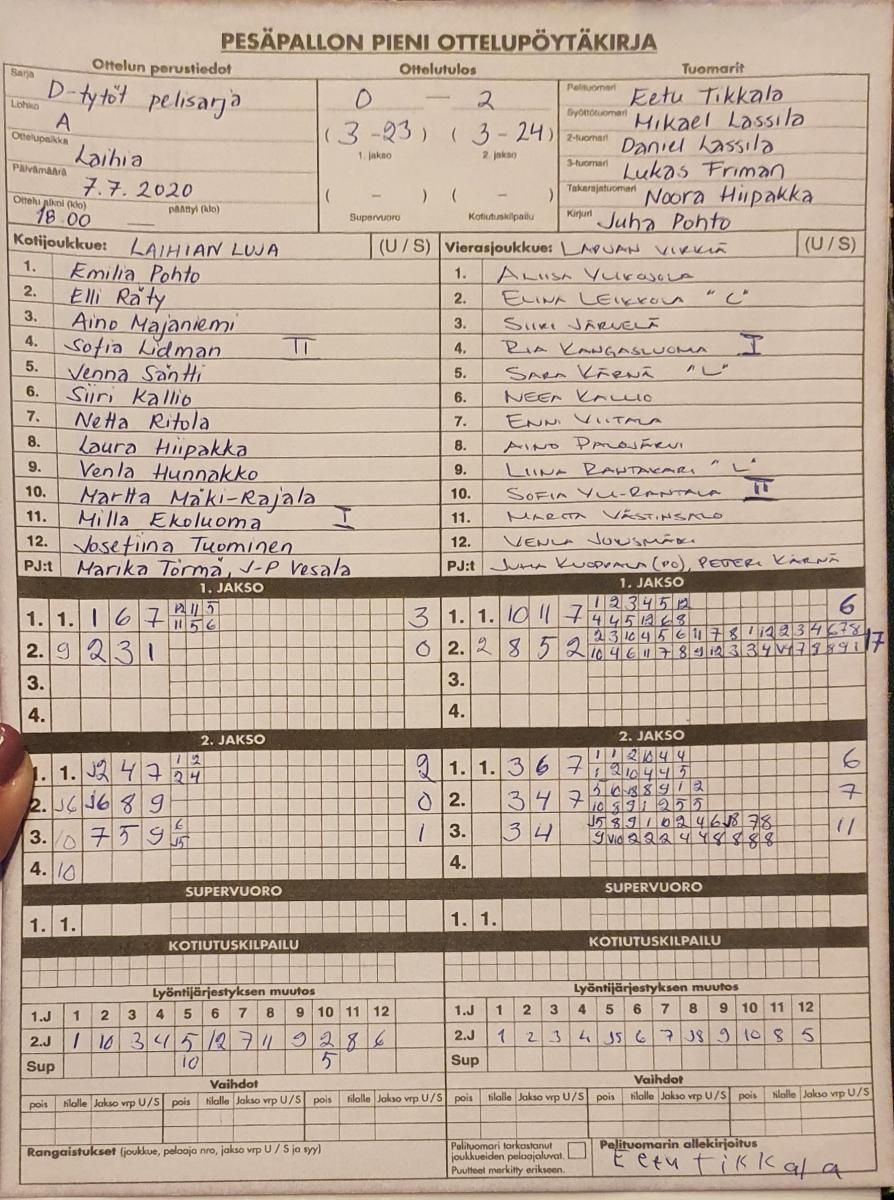 PESÄPALLON PIENI OTTELUPÖYTÄKIRJA
Ottelun perustiedot
Sarja D-tytöt pelisarja
Lohko A
Ottelupaikka Laihia
Päivämäärä 7.7.2020
Ottelu alkoi (klo) 18.00 päättyi (klo)
Ottelutulos
0 — 2
(3-23) (3-24)
1. jakso 2. jakso
( - ) ( - )
Supervuoro Kotiutuskilpailu
Tuomarit
Pelituomari Eetu Tikkala
Syöttötuomari Mikael Lassila
2-tuomari Daniel Lassila
3-tuomari Lukas Friman
Takarajatuomari Noora Hiipakka
Kirjuri Juha Pohto
Kotijoukkue: LAIHIAN LUJA (U / S)
1. Emilia Pohto
2. Elli Räty
3. Aino Majaniemi
4. Sofia Lidman II
5. Venna Säntti
6. Siiri Kallio
7. Netta Ritola
8. Laura Hiipakka
9. Venla Hunnakko
10. Martta Mäki-Rajala
11. Milla Ekoluoma I
12. Josefiina Tuominen
PJ:t Marika Törmä, J-P Vesala
Vierasjoukkue: LAPUAN VIRKIÄ (U / S)
1. ALIISA YLIKOJOLA
2. ELINA LEIKKOLA "C"
3. SIIRI JÄRVELÄ
4. RIA KANGASLUOMA I
5. SARA KÄRNÄ "L"
6. NEEA KALLIO
7. ENNI VIITALA
8. AINO PALOJÄRVI
9. LIINA RANTAKARI "L"
10. SOFIA YLI-RANTALA II
11. VÄSTINSALO
12. VENLA
PJ:t JUHA (PJ), PETERI KÄRNÄ
1. JAKSO
1. 1. 1 6 7 12 11 5 3
11 5 6
2. 9 2 3 1 0
3.
4.
1. JAKSO
1. 1. 10 11 7 1 2 3 4 5 12 6
4 4 5 12 6 8
2. 2 8 5 2 2 3 10 4 5 6 11 7 8 1 12 2 3 4 6 7 8 17
10 4 6 11 7 8 9 12 3 3 4 7 8 8 9 1
3.
4.
2. JAKSO
1. 1. J2 4 7 1 2 2
2 4
2. J6 J6 8 9 0
3. 10 7 5 9 6 1
J5
4. 10
2. JAKSO
1. 1. 3 6 7 1 1 2 10 4 4 6
1 2 10 4 4 5
2. 3 4 7 5 10 J8 8 9 1 2 7
10 8 9 1 2 5 5
3. 3 4 J5 8 9 1 10 2 4 6 J8 7 8 11
9 V10 2 2 2 4 4 8 8 8 8
4.
SUPERVUORO
1. 1.
SUPERVUORO
1. 1.
KOTIUTUSKILPAILU
KOTIUTUSKILPAILU
Lyöntijärjestyksen muutos
1.J 1 2 3 4 5 6 7 8 9 10 11 12
2.J 1 10 3 4 5 12 7 11 9 2 8 6
Sup 10 5
Lyöntijärjestyksen muutos
1.J 1 2 3 4 5 6 7 8 9 10 11 12
2.J 1 2 3 4 J5 6 7 J8 9 10 8 5
Sup
Vaihdot
pois tilalle Jakso vrp U/S pois tilalle Jakso vrp U/S pois tilalle Jakso vrp U/S
Vaihdot
pois tilalle Jakso vrp U/S pois tilalle Jakso vrp U/S pois tilalle Jakso vrp U/S
Rangaistukset (joukkue, pelaaja nro, jakso vrp U / S ja syy)
Pelituomari tarkastanut
joukkueiden pelaajaluvat.
Puutteet merkitty erikseen.
Pelituomarin allekirjoitus
Eetu Tikkala